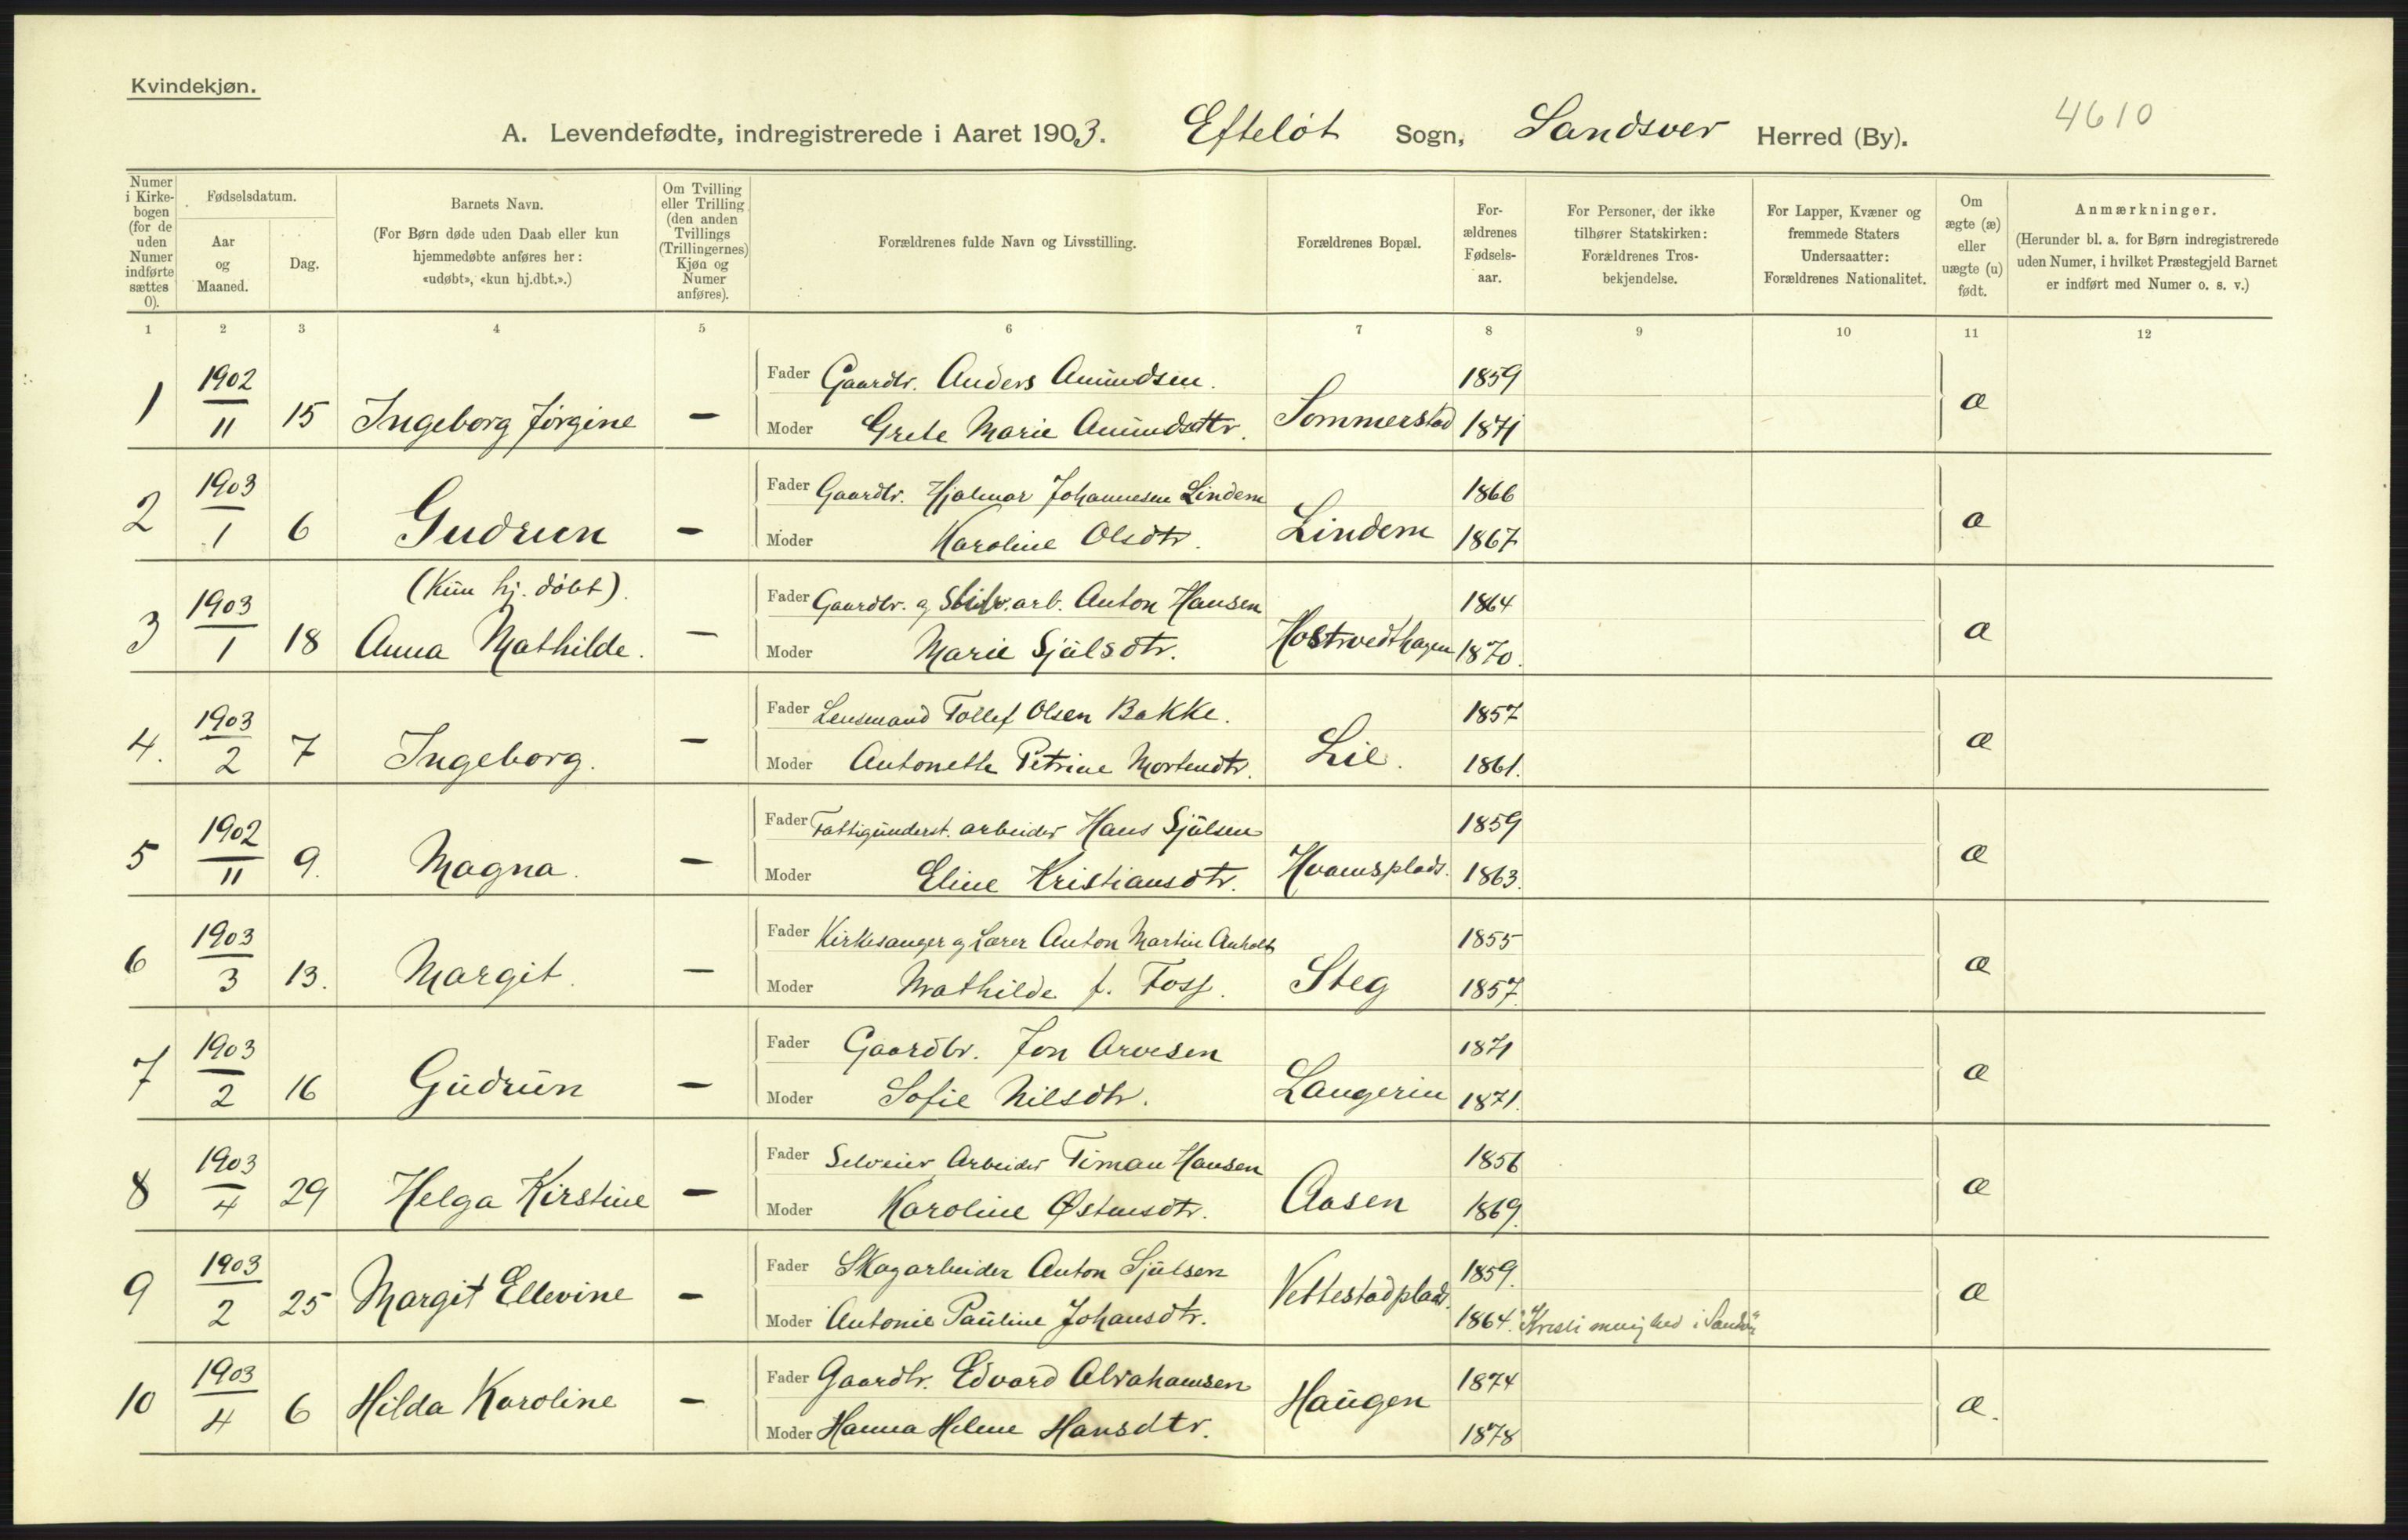 Kvindekjøn.
A. Levendefødte, indregistrerede i Aaret 1903. Efteløt Sogn, Sandsver Herred (By). 4610
Numer i Kirkebogen (for de uden Numer indførte sættes 0).
Fødselsdatum.
Aar og Maaned.
Dag.
Barnets Navn.
(For Børn døde uden Daab eller kun hjemmedøbte anføres her: «udøbt», «kun hj.dbt.».)
Om Tvilling eller Trilling (den anden Tvillings (Trillingernes) Kjøn og Numer anføres).
Forældrenes fulde Navn og Livsstilling.
Forældrenes Bopæl.
Forældrenes Fødselsaar.
For Personer, der ikke tilhører Statskirken: Forældrenes Trosbekjendelse.
For Lapper, Kvæner og fremmede Staters Undersaatter: Forældrenes Nationalitet.
Om ægte (æ) eller uægte (u) født.
Anmærkninger.
(Herunder bl. a. for Børn indregistrerede uden Numer, i hvilket Præstegjeld Barnet er indført med Numer o. s. v.)
1 2 3 4 5 6 7 8 9 10 11 12
1 1902/11 15 Ingeborg Jørgine –
Fader Gaardbr. Anders Amundsen. 1859
Moder Grete Marie Amundsdtr. Sommerstad 1871 æ
2 1903/1 6 Gudrun –
Fader Gaardbr. Hjalmar Johannesen Lindem 1866
Moder Karoline Olsdtr. Lindem 1867 æ
3 1903/1 18 (Kun hj. døbt). Anna Mathilde. –
Fader Gaardbr. og arb. Anton Hansen 1864
Moder Marie Sjulsdtr. Hostvedthagen 1870. æ
4. 1903/2 7 Ingeborg. –
Fader Lensmand Tollef Olsen Bakke. 1857
Moder Antonette Petrine Mortendtr. Lie. 1861. æ
5 1902/11 9. Magna. –
Fader Fattigunderst. arbeider Hans Sjulsen 1859
Moder Eline Kristiansdtr. Hvamsplads. 1863. æ
6 1903/3 13. Margit. –
Fader Kirkesanger og Lærer Anton Martin Anholt 1855
Moder Mathilde f. Foss. Steg 1857. æ
7 1903/2 16 Gudrun –
Fader Gaardbr. Jon Arvesen 1871
Moder Sofie Nilsdtr. Langerin 1871. æ
8 1903/4 29 Helga Kirstine –
Fader Selveier, Arbeider Timan Hansen 1856
Moder Karoline Østensdtr. Aasen 1869. æ
9 1903/2 25 Margit Ellevine –
Fader Skogarbeider Anton Sjulsen 1859.
Moder Antonie Pauline Johansdtr. Vettestadplads. 1864. æ
10 1903/4 6 Hilda Karoline –
Fader Gaardbr. Edvard Abrahamsen 1874
Moder Hanna Helene Hansdtr. Haugen 1878 æ.